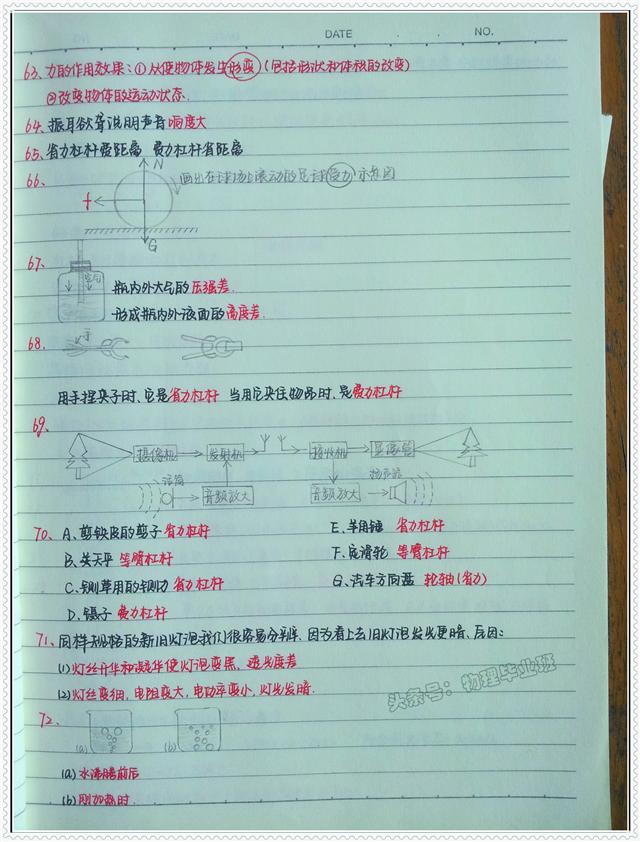 DATE . . NO.
63、力的作用效果：①从使物体发生形变（包括形状和体积的改变）
②改变物体的运动状态.
64、振耳欲聋说明声音响度大
65、省力杠杆费距离 费力杠杆省距离
66、
N
画出在球场上滚动的足球受力示意图
f
G
67、
空气
瓶内外大气的压强差.
形成瓶内外液面的高度差.
68、
手
用手捏夹子时、它是省力杠杆 当用它夹住物品时、是费力杠杆
69、
摄像机 发射机 接收机 显像管
话筒 扬声器
音频放大 音频放大
70、A、剪铁皮的剪子 省力杠杆 E、羊角锤 省力杠杆
B、关天平 等臂杠杆 F、定滑轮 等臂杠杆
C、铡草用的铡刀 省力杠杆 G、汽车方向盘 轮轴(省力)
D、镊子 费力杠杆
71、同样规格的新旧灯泡我们很容易分辨. 因为看上去旧灯泡发光更暗、原因：
(1) 灯丝升华和凝华使灯泡变黑、透光度差
(2) 灯丝变细, 电阻变大, 电功率变小, 灯光发暗.
头条号：物理毕业班
72、
(a) (b)
(a) 水沸腾前后
(b) 刚加热时.